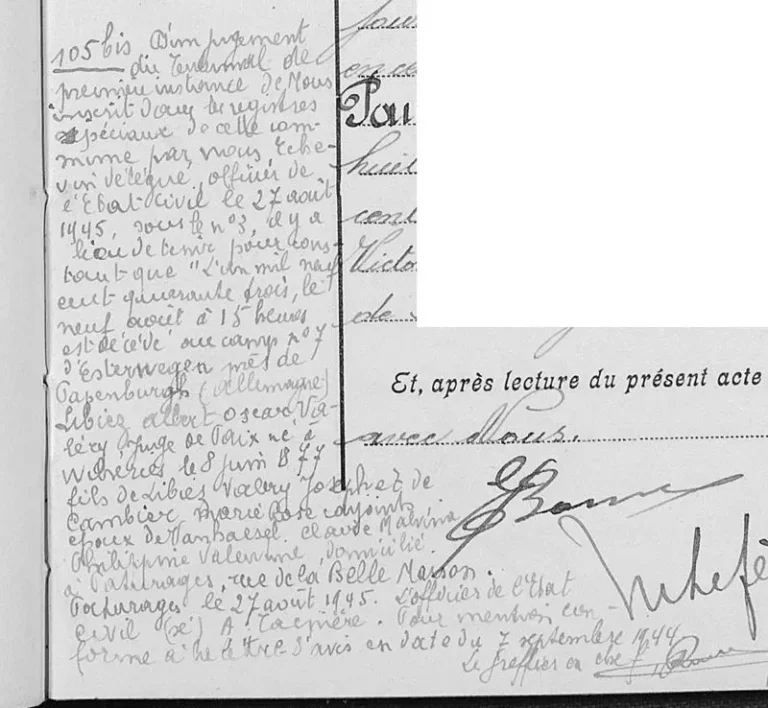 105 bis D'un jugement
du Tribunal de
première instance de Mons
inscrit dans les registres
spéciaux de cette com-
mune par nous, Eche-
vin délégué, officier de
l'Etat-civil le 27 août
1945, sous le n° 3, il y a
lieu de tenir pour cons-
tant que "L'an mil neuf
cent quarante trois, le
neuf août à 15 heures
est décédé au camp n° 7
d'Esterwegen près de
Papenburgh (Allemagne)
Libiez Albert Oscar Va-
léry, Juge de Paix né à
Wihéries le 8 juin 1877
fils de Libiez Valéry Joseph et de
Cambier Marie Rose conjoints
époux de Vanhaesel. Claude Malvina
Philippine Valentine, domicilié
à Pâturages, rue de la Belle Maison.
Pâturages le 27 août 1945. L'officier de l'Etat
civil (sé) A. . Pour mention con-
forme à la lettre d'avis en date du 7 septembre 1944
Le Greffier en chef,
en ce
Pou
huit
cent
Victo
de
Et, après lecture du présent acte
avec Nous.